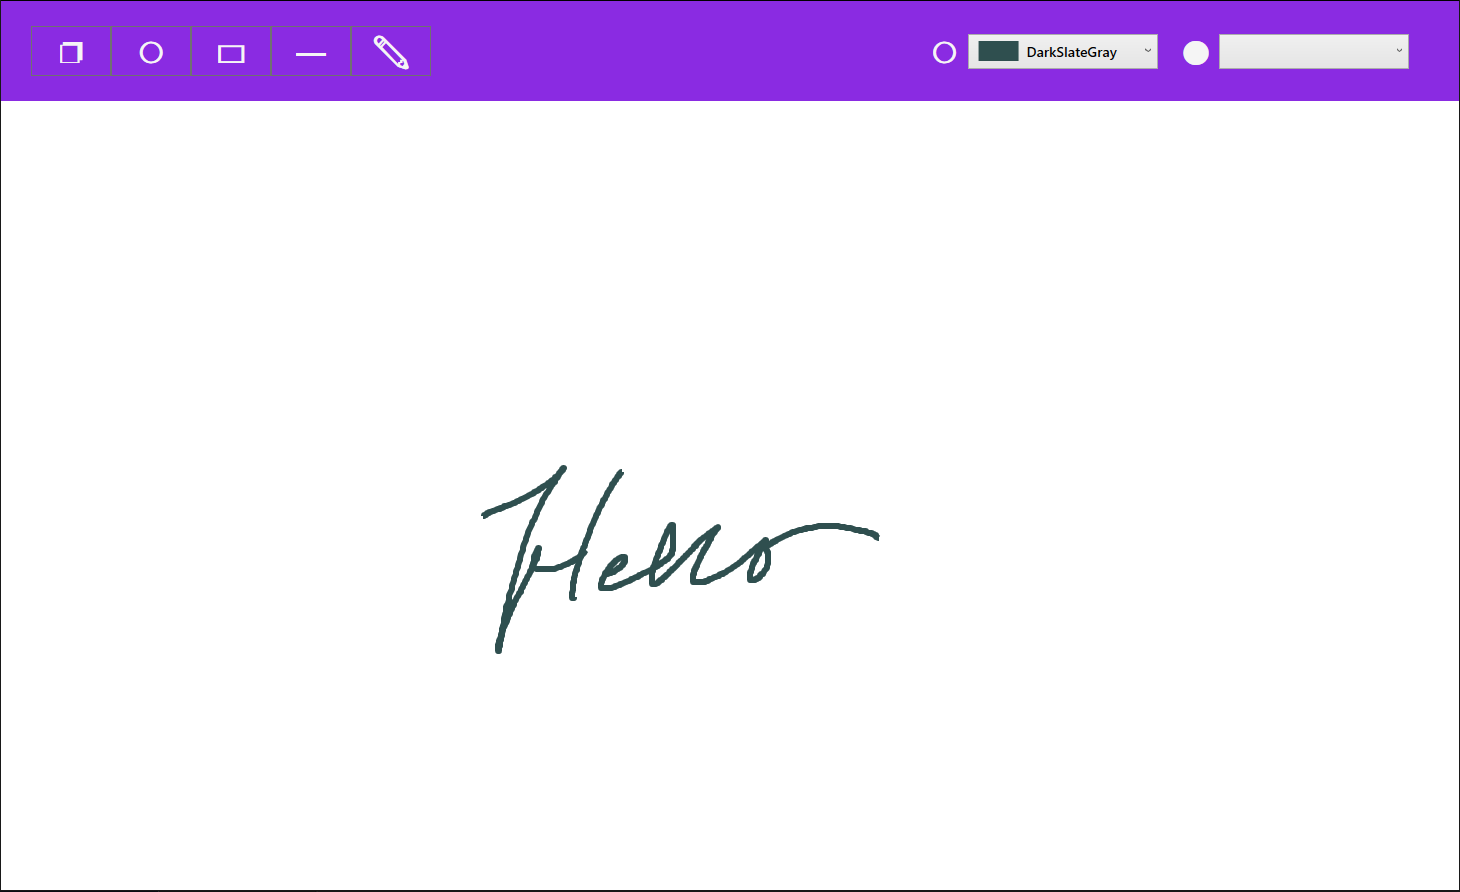 DarkSlateGray
Hello